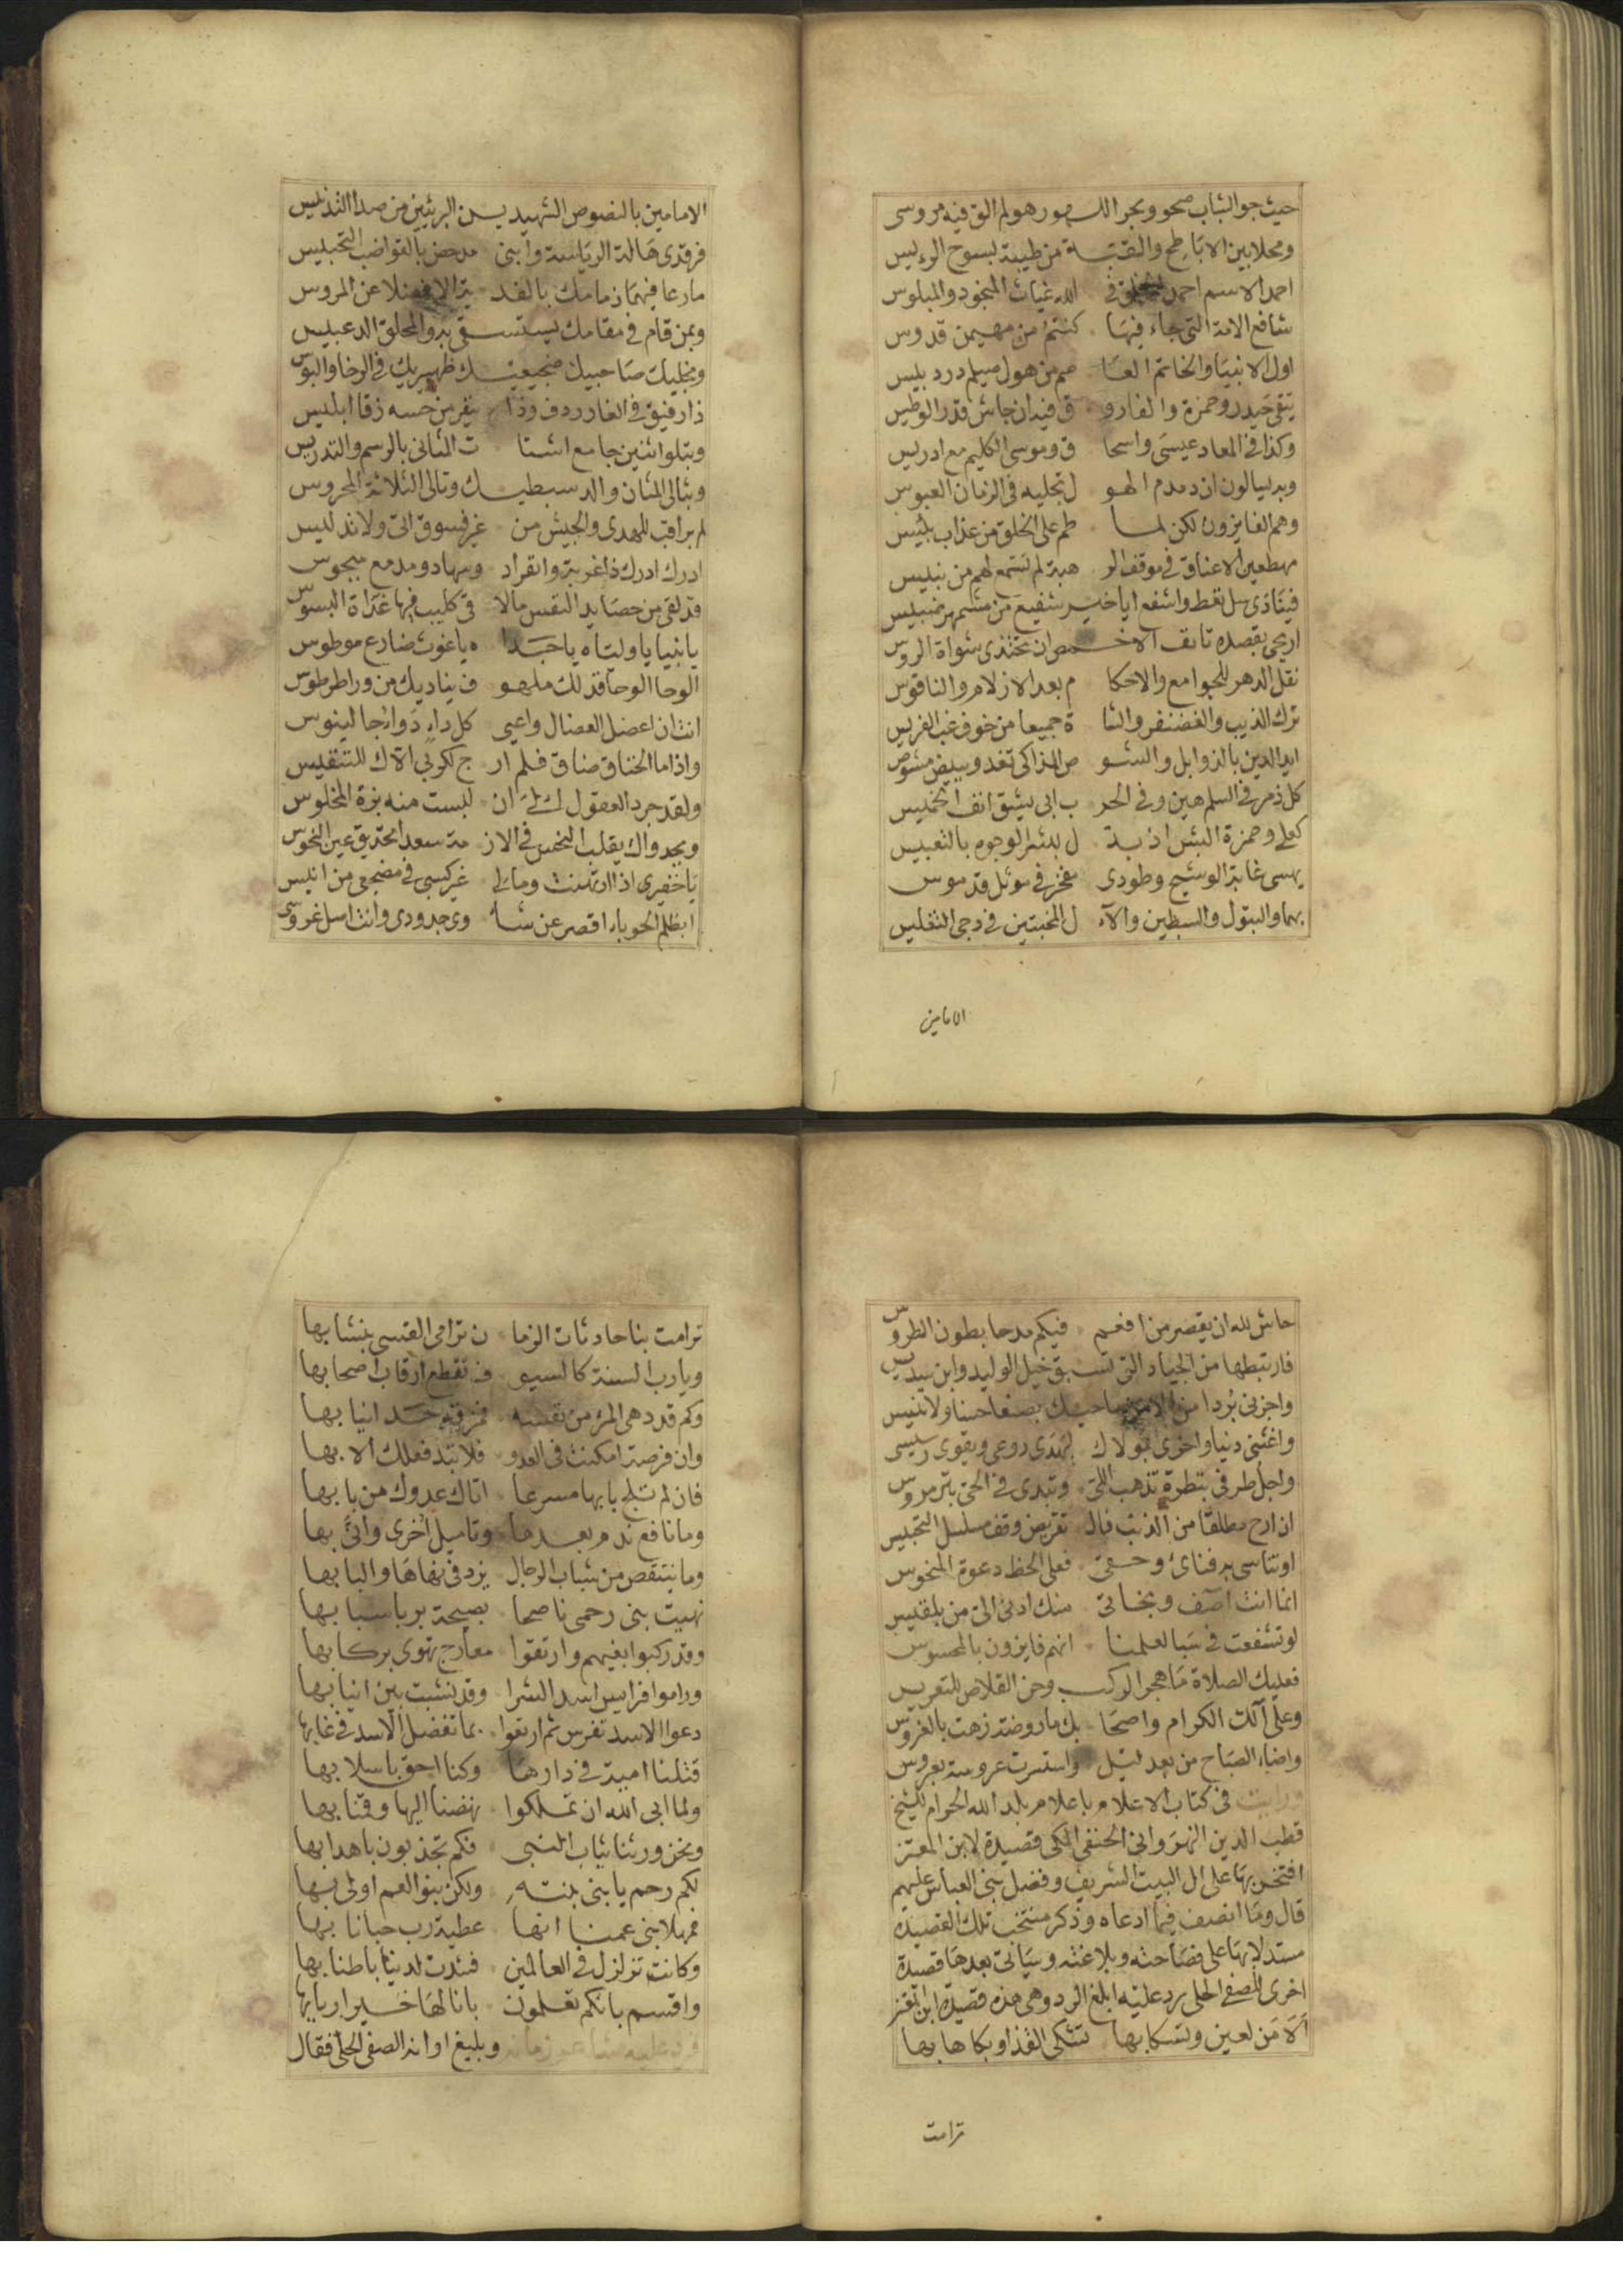 حيث جو الشباب صحو وبحر اللهو رهو ولم الق فيه مروسى
ومحلا بين الاباطح والقبة من طيبة لبسوح الرءيس
احمد الاسم احمد الخلق فى الله غياث المنجود والمبلوس
شافع الامة التى جاء فيها كنتم من مهيمن قدوس
اول الانبيا والخاتم العاصم من هول صيلم دردبيس
يتقى حيدر وحمزة والفاروق فيه ان جاش قدر الوطيس
وكذا فى المعاد عيسى واسحاق وموسى الكليم مع ادريس
وبه يسالون ان دمدم الهول تجليه فى الزمان العبوس
وهم الفايزون لكن لما طم على الخلق من عذاب بئيس
مهطعين الاعناق فى موقف الرهبة لم تستمع لهم من نبيس
فينادى سل تعط واشفع ايا خير شفيع من
اريحى بقصده تانف الاخمص ان تحتذى شواة الروس
نقل الدهر للجوامع والاحكام بعد الازلام والناقوس
ترك الذيب والغضنفر والشاة جميعا من خوف غب الفريس
ايد الدين بالذوابل والشوس المذاكى تعدو وبيض
كل ذمر فى السلم هين وفى الحرب ابى يشق انف الخميس
كعلى وحمزة البئس اذ بدل بشر الوجوه بالتعبيس
يهسى غابة الوشيج وطودى مفخر فى موئل قدموس
بهما والبتول والسبطين والآل المخبتين فى دجى التغليس
الامامين
الامامين بالنصوص الشهيدين البريئين من صدا التدليس
فرقدى هالة الرياسة وابنى مدحض بالقواضب التجبيس
مارعا فيهما ذمامك بالفدية الا
وبمن قام فى مقامك يستسقى به والمحلق الدعبليس
ومجليك صاحبيك ضجيعيك ظهيريك فى الرخا والبوس
ذا رفيق فى الغار ردف وذا يفر من حسه زقا ابليس
وبتلو اثنين جامع اشتات المثانى بالرسم والتدريس
وبثالى المثان والد سبطيك وتالى الثلاثة المحروس
لم يراقب للهدى والجيش من غير فسوق اتى ولا تدليس
ادرك ادرك ذا غربة وانفراد وسهاد ومدمع مبجوس
قد لقى من حصايد النفس مالاقى كليب فيها غداة البسوس
يا نبيا يا وليتاه يا حبدا ه ياغوث ضارع موطوس
الوحا الوحا فذلك ملهوف يناديك من ورا طرطوس
انت ان اعضل العضال واعيى كل داء دوا جالينوس
واذا ما الخناق ضاق فلم ارج لكربى الاك للتنفيس
ولقد جرد العقول لك لى ان لبست منه بزة المخلوس
وبجدواك يقلب النحس فى الازمة سعدا تحديق عين النحوس
يا خفيرى اذا ارتهنت ومالى غير كسبى فى مضجعى من انيس
ابظلم الحوباء اقصر عن شاوى جدودى وانت اصل غروسى
حاش لله ان يقصر من افعم فيكم مدحا بطون الطروس
فارتبطها من الجياد التى تسبق خيل الوليد وابن
واجزنى بردا من الامن ياحيك بصنعا حسنا ولا تنيس
واغثنى دنيا واخرى بمولاك لتهدى روعى وبقوى رسيسى
واجل طرفى بنظرة تذهب اللى وتبدى فى الحى
ان ارح مطلقا من الذنب فبال تقريض وقف مسلسل التجبيس
او تناسى به فنائ وحقى فعلى الحظ دعوة المنحوس
انما انت اصف وبخاتى منك ادنى الى من بلقيس
لو تشفعت فى سبا لعلمنا انهم فايزون بالمحسوس
فعليك الصلاة ما هجر الركب وحن القلاص للتعريس
وعلى آلك الكرام واصحابك ما روضة زهت بالغروس
واضاء الصباح من بعد ليل واستسرت عروسة بعروس
ورايت فى كتاب الاعلام باعلام بلد الله الحرام للشيخ
قطب الدين النهروانى الحنفى المكى قصيدة لابن المعتز
افتخر بها على ال البيت الشريف وفضل بنى العباس عليهم
قال وما انصف فيما ادعاه وذكر منتخب تلك القصيدة
مستدلا بها على فصاحته وبلاغته وسياتى بعدها قصيدة
اخرى للصفى الحلى رد عليه ابلغ الرد وهى هذه قصيدة ابن المعتز
الا من لعين وتسكابها تشكى القذا وبكاها بها
ترامت
ترامت بنا حادثات الزمان ترامى القسى بنشابها
ويارب السنة كالسيوف تقطع ارقاب اصحابها
وكم قد دهى المرء من نفسه فمزقه حد انيابها
وان فرصة امكنت فى العدو فلا تبد فعلك الا بها
فان لم تلج بابها مسرعا اتاك عدوك من بابها
وما نافع ندم بعدها وتاميل اخرى وانى بها
وما ينتقص من شباب الرجال يزد فى نهاها والبابها
نهيت بنى رحمى ناصحا نصيحة بر بانسابها
وقد ركبوا بغيهم وارتقوا معارج تهوى بركابها
وراموا فرايس اسد الشرا وقد نشبت بين انيابها
دعوا الاسد تفرس ثم ارتعوا بما تفضل الاسد فى غابها
قتلنا امية فى دارها وكنا احق باسلابها
ولما ابى الله ان تملكوا نهضنا اليها وقمنا بها
ونحن ورثنا ثياب النبى فكم تجذبون باهدابها
لكم رحم يا بنى بنته ولكن بنو العم اولى بها
فمهلا بنى عمنا انها عطية رب حبانا بها
وكانت تزلزل فى العالمين فشدت لدينا باطنابها
واقسم بانكم تعلمون بانا لها خير اربابها
فرد عليه شاعر زمانه وبليغ اوانه الصفى الحلى فقال